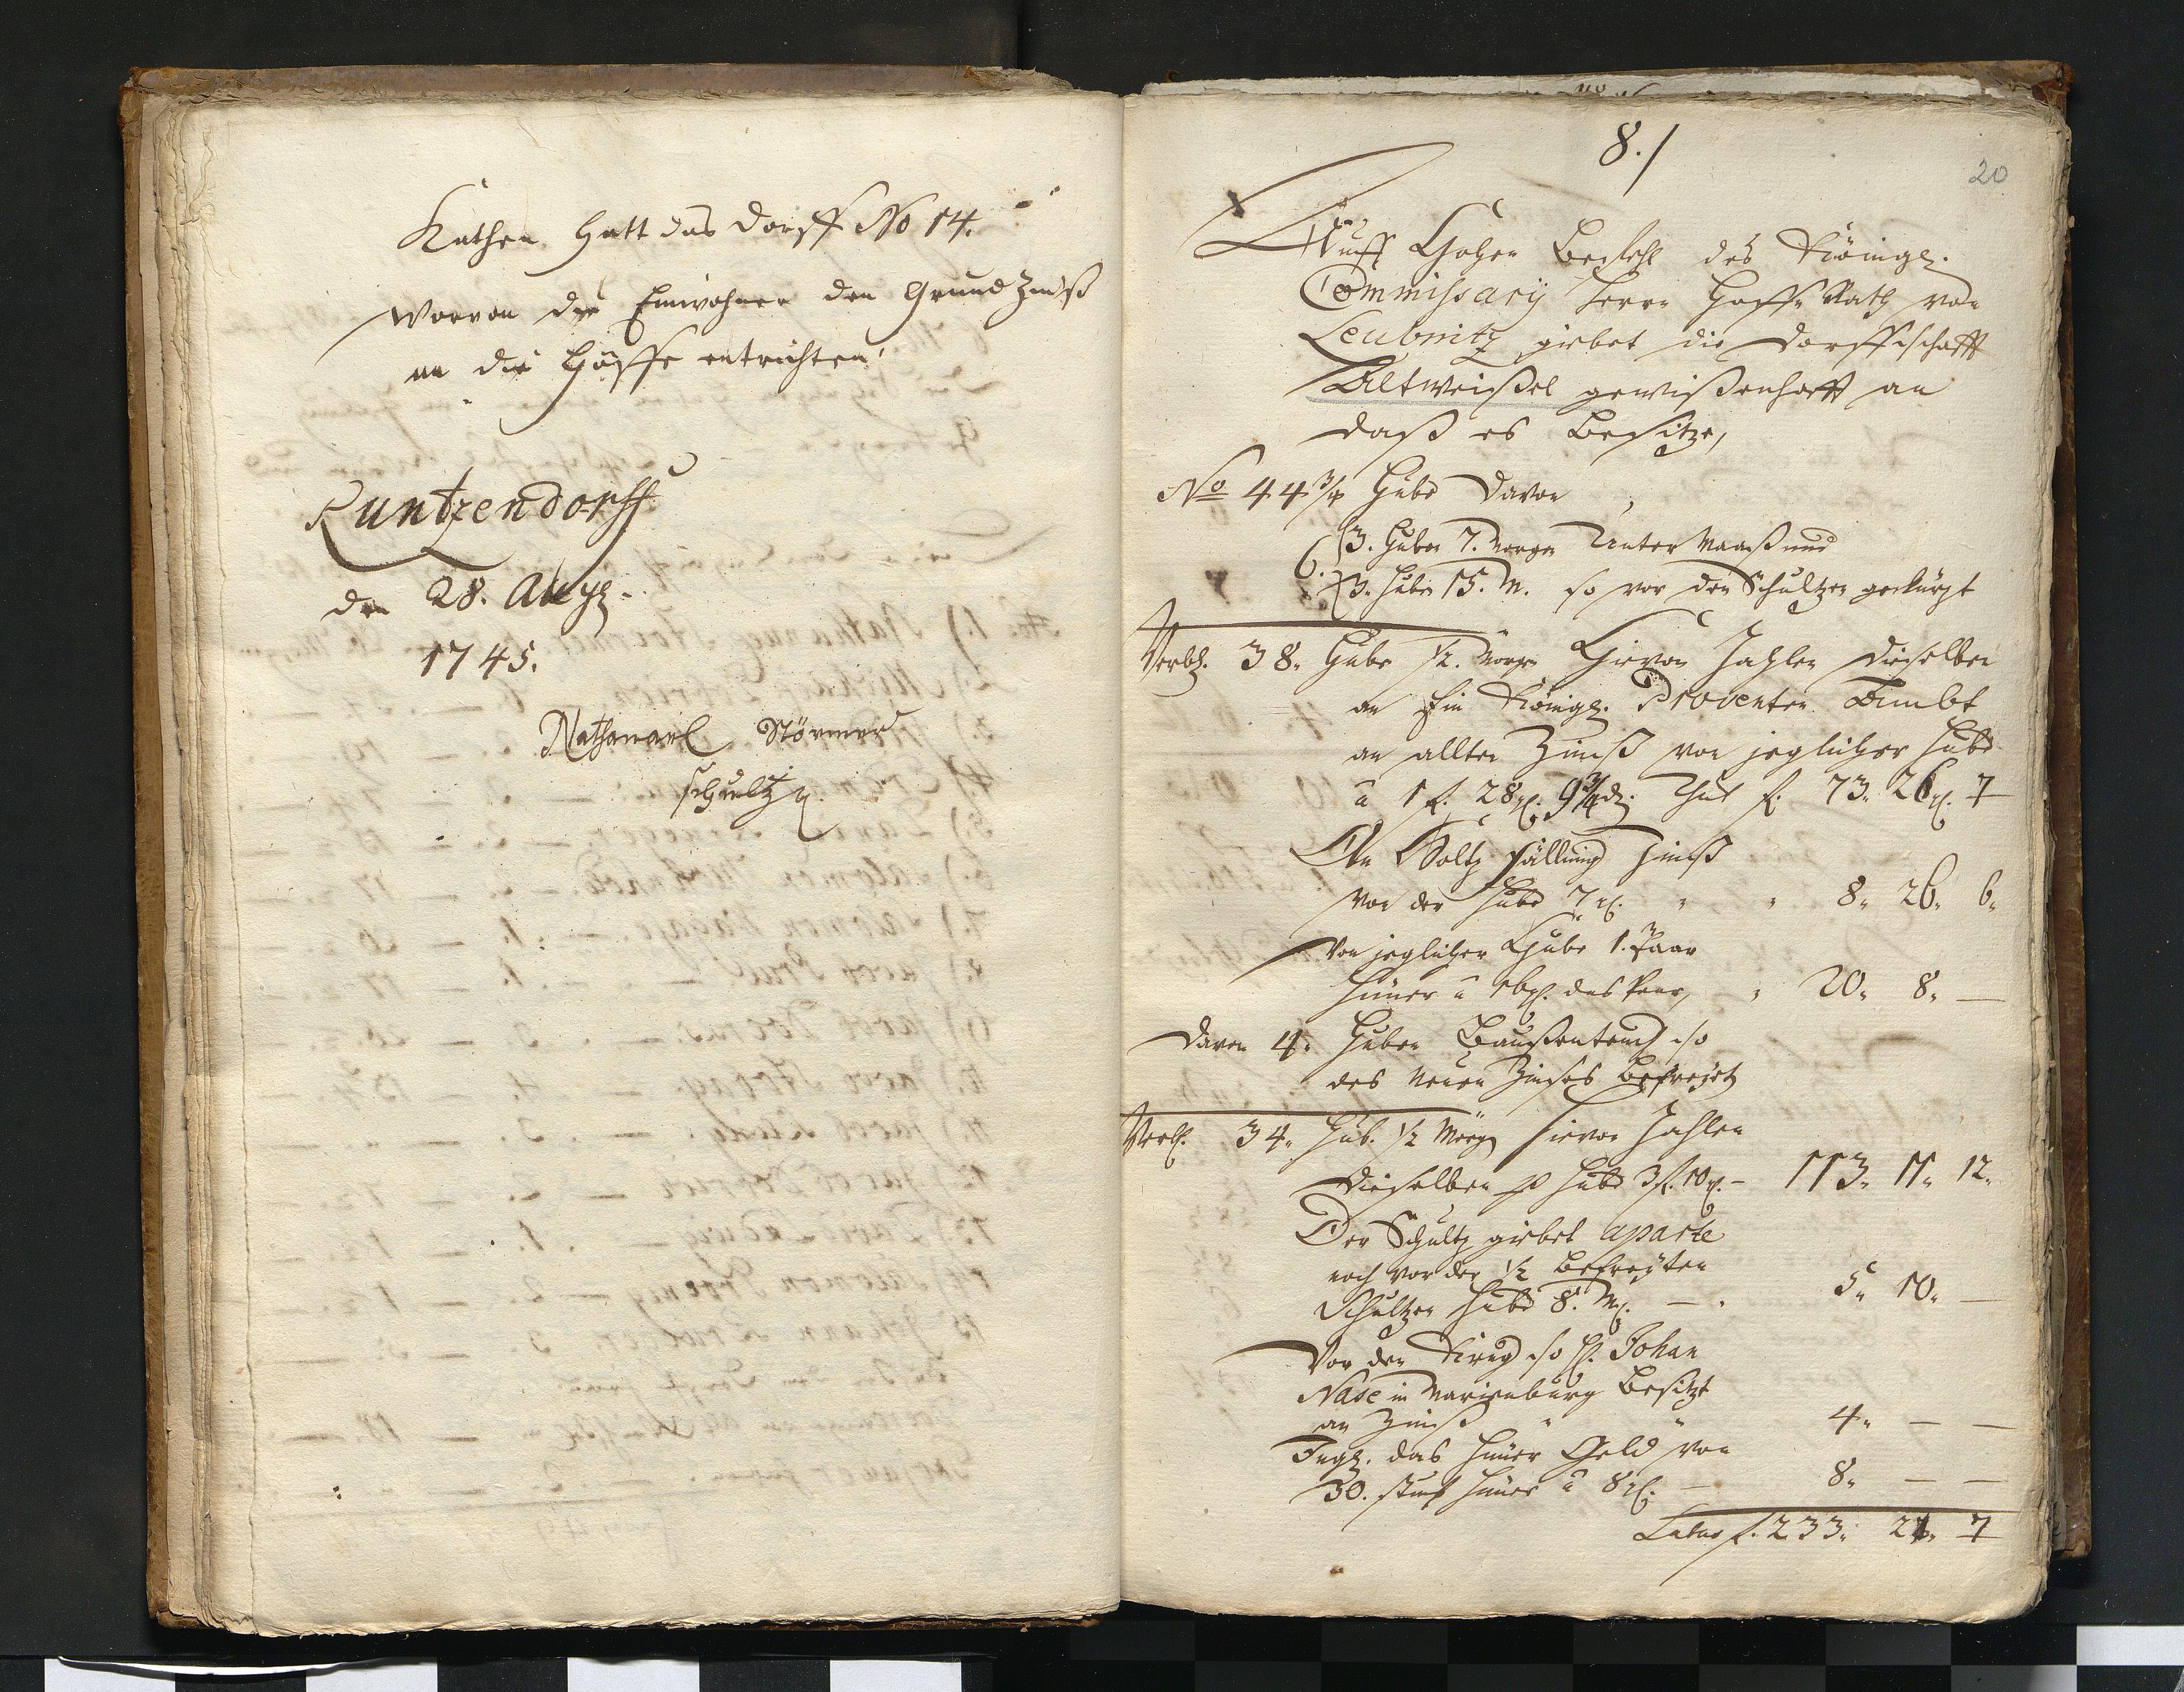 Kathen hatt das dorff No 14.
worvon die Einwohner den Grund Zinß
an die Höffe entrichten
Kuntzendorff
den 28. Aug.
1745.
Nathanael Störmer
Schultz
8./
20
Auff Hohen Befehl des Königl.
Commissarij Herrn Hoff Rath von
Leubnitz giebet die Dorffschafft
Altweißel gewißenhafft an
daß es Besitze,
No 44 3/4 Hube davon
6. 3. Huben 7. Morgen Unter Maaß und
3. Hube 15. M. so vor den Schultzen gekürtzt
Verbl. 38. Hube 1/2. Morgen Hievon Zahlen dieselben
an Ein Königl. Proventen Ambt
an alten Zinß von jeglicher Hube
a 1 f. 28 g. 9 3/4 d. thut f. 73. 26 g. 7
An Holtz fällung Zinß
von der Hube 7 g. " " 8. 26. 6.
Von jeglicher Hube 1. Paar
Hüner a 16 g. das Paar, " 20. 8. —
Davon 4. Huben so
des Neuen Zinses Befreyet
Verbl. 34. Hub. 1/2 Morg hievon Zahlen
dieselben p Hube 3 f. 10 g. — 113. 11. 12.
Der Schultz giebet aparte
noch vor der 1/2 Befreyten
Schultzen Hube 8. M. — . 5. 10. —
Vor den Krug so H. Johan
Nase in Marienburg Besitzt
an Zinß " " 4. — —
Ingl. das Hüner Geld von
30. stück Hüner a 8 g. — 8. — —
Latus f. 233. 21. 7